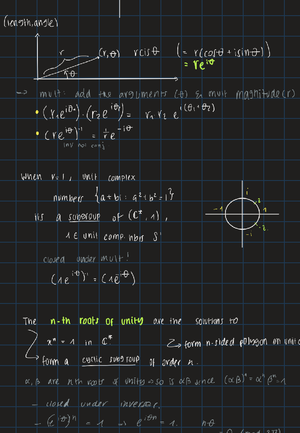 (length, angle)
r (r, θ) r cis θ (= r(cosθ + i sinθ))
θ = re^{iθ}
→ mult: add the arguments (θ) & mult magnitude (r)
• (r₁e^{iθ₁})·(r₂e^{iθ₂}) = r₁r₂ e^{i(θ₁+θ₂)}
• (re^{iθ})⁻¹ = 1/r e^{-iθ}
When r=1, unit complex
numbers {a+bi : a²+b²=1}
its a subgroup of (ℂ*, ·),
1 ∈ unit comp. nbrs S¹
closed under mult!
(1e^{iθ})⁻¹ = (1e^{-iθ})
-1 i 1 -i
The n-th roots of unity are the solutions to
xⁿ = 1 in ℂ* → form n-sided polygon on unit
form a cyclic subgroup of order n.
α, β are nth roots of unity → so is αβ since (αβ)ⁿ = αⁿβⁿ = 1
- closed under inversion.
- (e^{iθ})ⁿ = 1 → e^{iθn} = 1. nθ